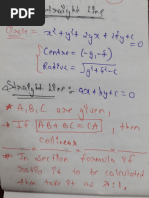 Straight line
Circle = x²+y²+2gx+2fy+c=0
Centre = (-g,-f)
Radius = √g²+f²-c
Straight line = ax+by+c=0
* A,B,C are given,
* If AB+BC=CA, then
collinear
* In section formula if
ratio is to be calculated
then take it as λ:1,